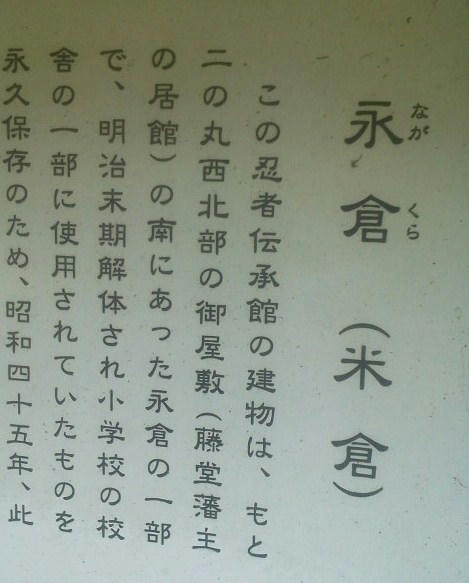 永倉（米倉）
なが くら
この忍者伝承館の建物は、もと
二の丸西北部の御屋敷（藤堂藩主
の居館）の南にあった永倉の一部
で、明治末期解体され小学校の校
舎の一部に使用されていたものを
永久保存のため、昭和四十五年、此